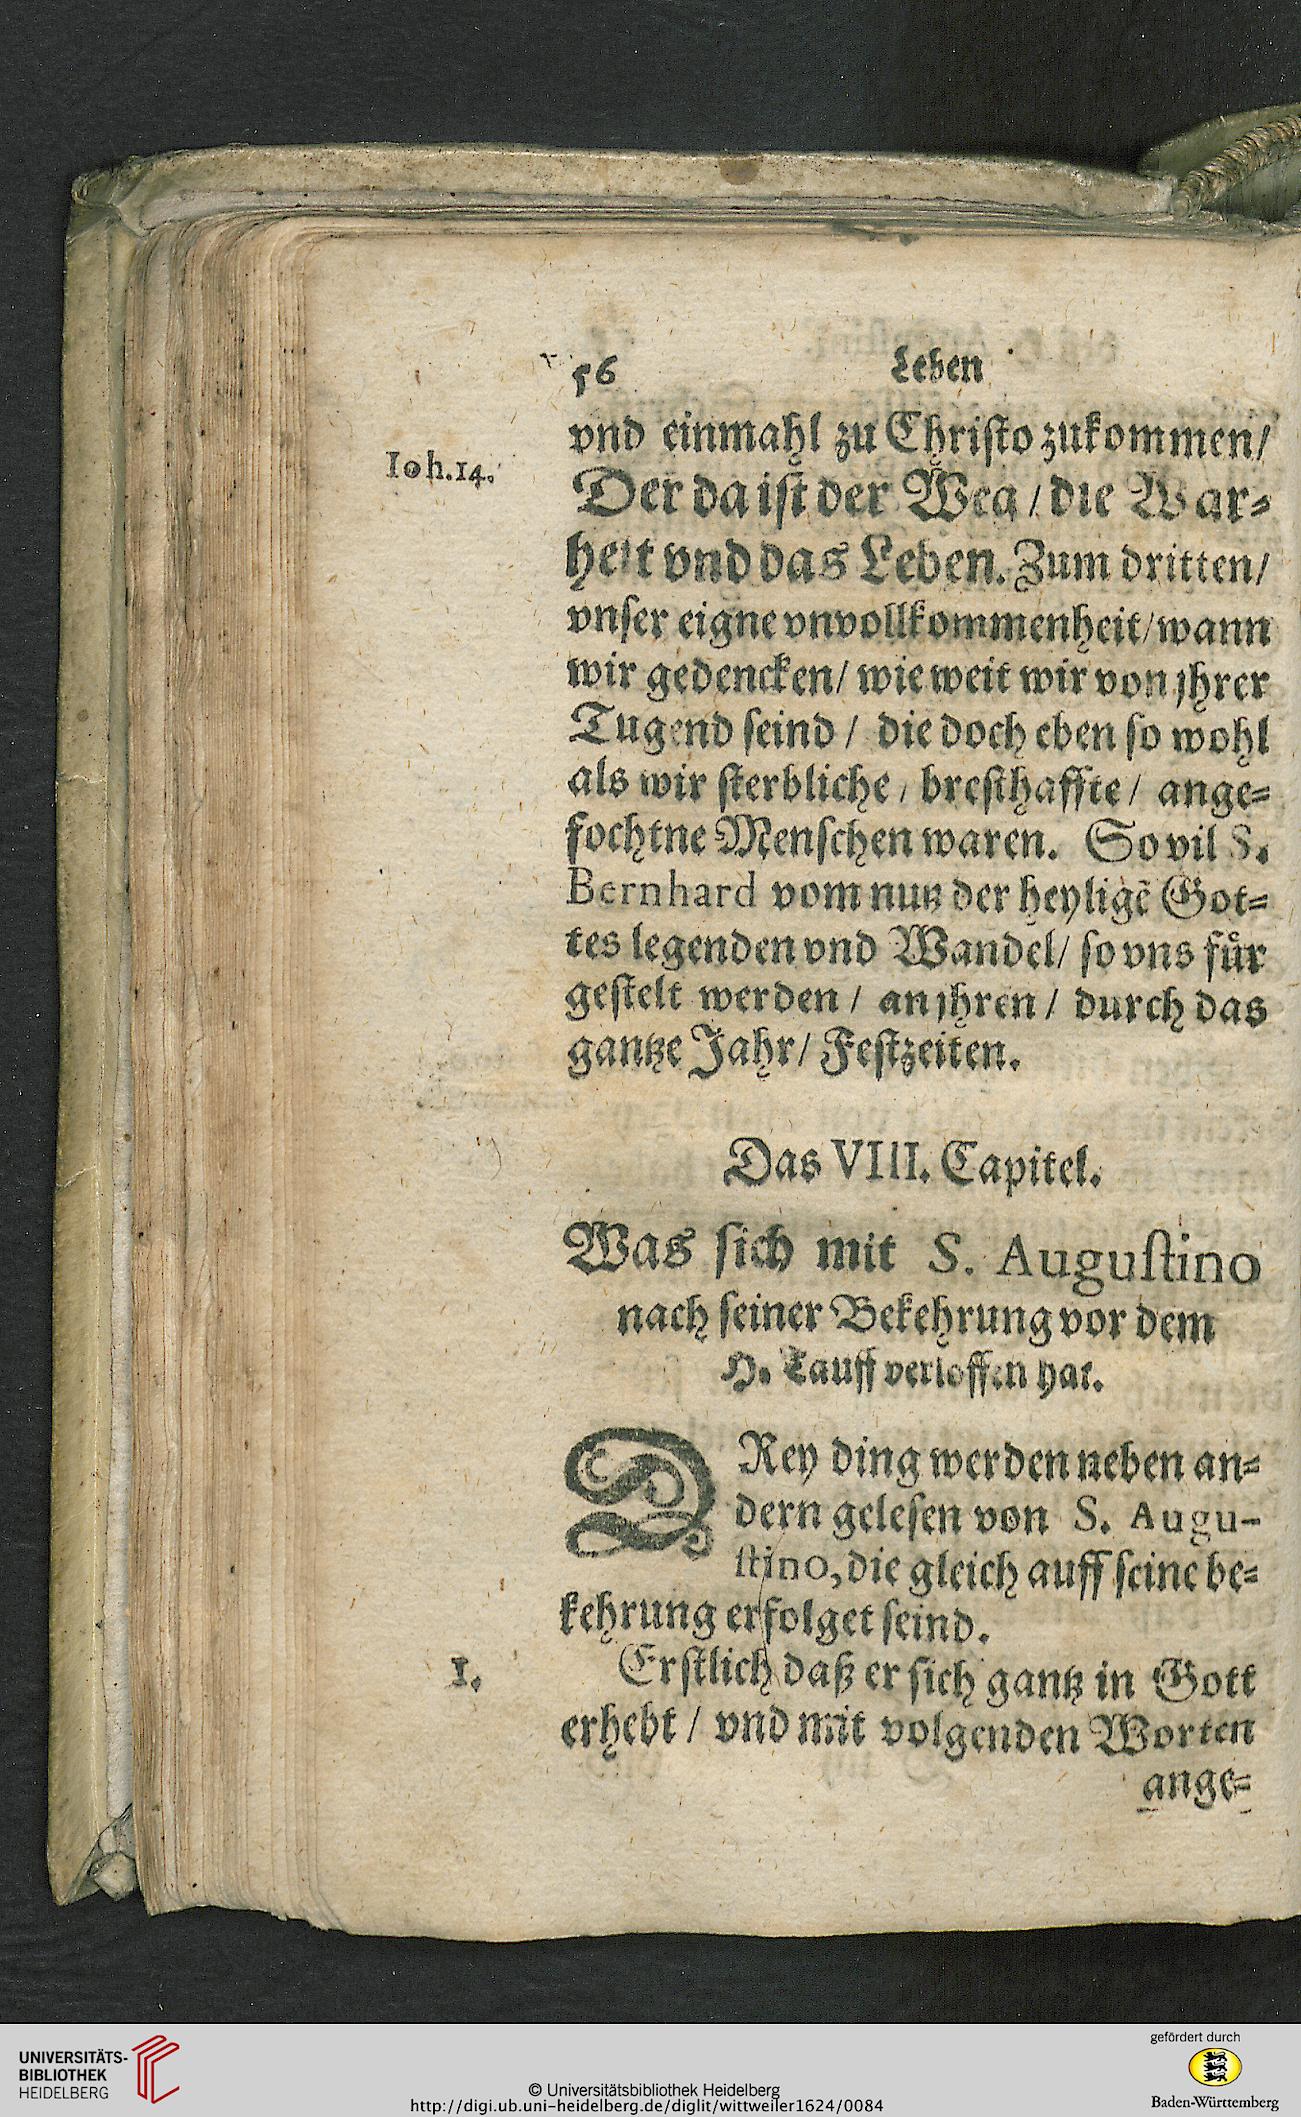 56 Leben
vnd einmahl zu Christo zukommen/
Ioh.14.
Der da ist der Weg/ die War⸗
heit vnd das Leben. Zum dritten/
vnser eigne vnvollkommenheit/ wann
wir gedencken/ wie weit wir von jhrer
Tugend seind/ die doch eben so wohl
als wir sterbliche/ bresthaffte/ ange⸗
fochtne Menschen waren. So vil S.
Bernhard vom nutz der heyligẽ Got⸗
tes legenden vnd Wandel/ so vns fuͤr
gestelt werden/ an jhren/ durch das
gantze Jahr/ Festzeiten.
Das VIII. Capitel.
Was sich mit S. Augustino
nach seiner Bekehrung vor dem
H. Tauff verloffen hat.
DRey ding werden neben an⸗
dern gelesen von S. Augu-
stino, die gleich auff seine be⸗
kehrung erfolget seind.
1. Erstlich daß er sich gantz in Gott
erhebt/ vnd mit volgenden Worten
ange⸗
UNIVERSITÄTS-
BIBLIOTHEK
HEIDELBERG
© Universitätsbibliothek Heidelberg
http://digi.ub.uni-heidelberg.de/diglit/wittweiler1624/0084
gefördert durch
Baden-Württemberg